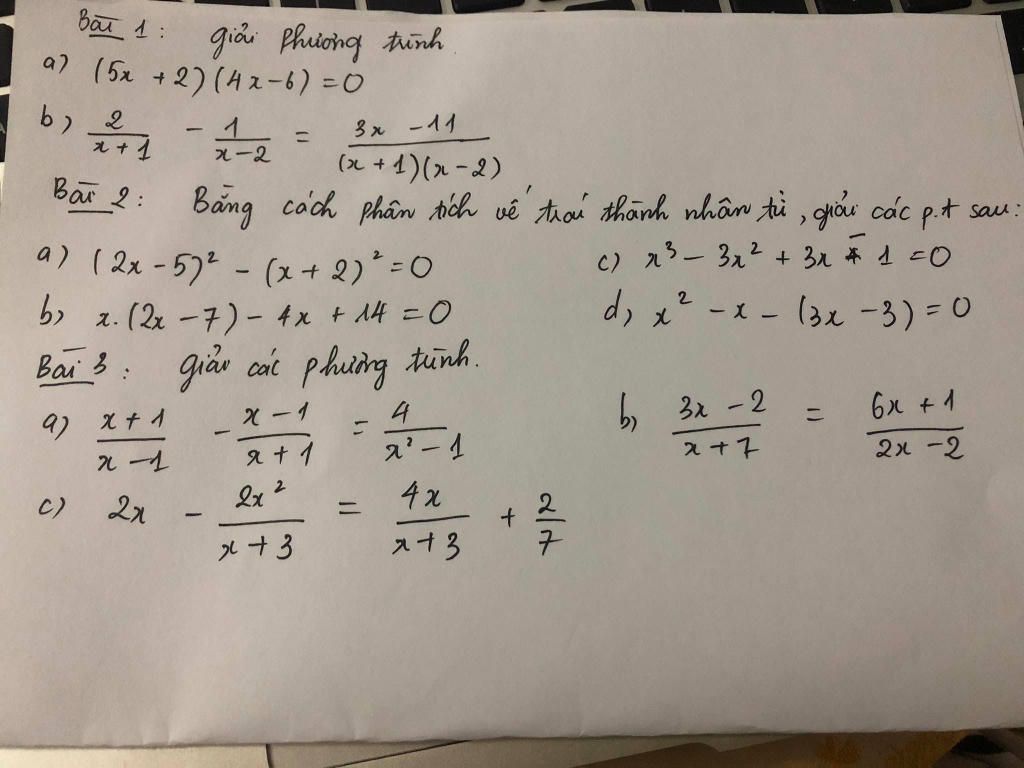 Bài 1: Giải phương trình.
a) (5x + 2)(4x - 6) = 0
b) 2/(x + 1) - 1/(x - 2) = (3x - 11)/((x + 1)(x - 2))
Bài 2: Bằng cách phân tích vế trái thành nhân tử, giải các p.t sau:
a) (2x - 5)² - (x + 2)² = 0
c) x³ - 3x² + 3x - 1 = 0
b) x.(2x - 7) - 4x + 14 = 0
d) x² - x - (3x - 3) = 0
Bài 3: Giải các phương trình.
a) (x + 1)/(x - 1) - (x - 1)/(x + 1) = 4/(x² - 1)
b) (3x - 2)/(x + 7) = (6x + 1)/(2x - 2)
c) 2x - 2x²/(x + 3) = 4x/(x + 3) + 2/7